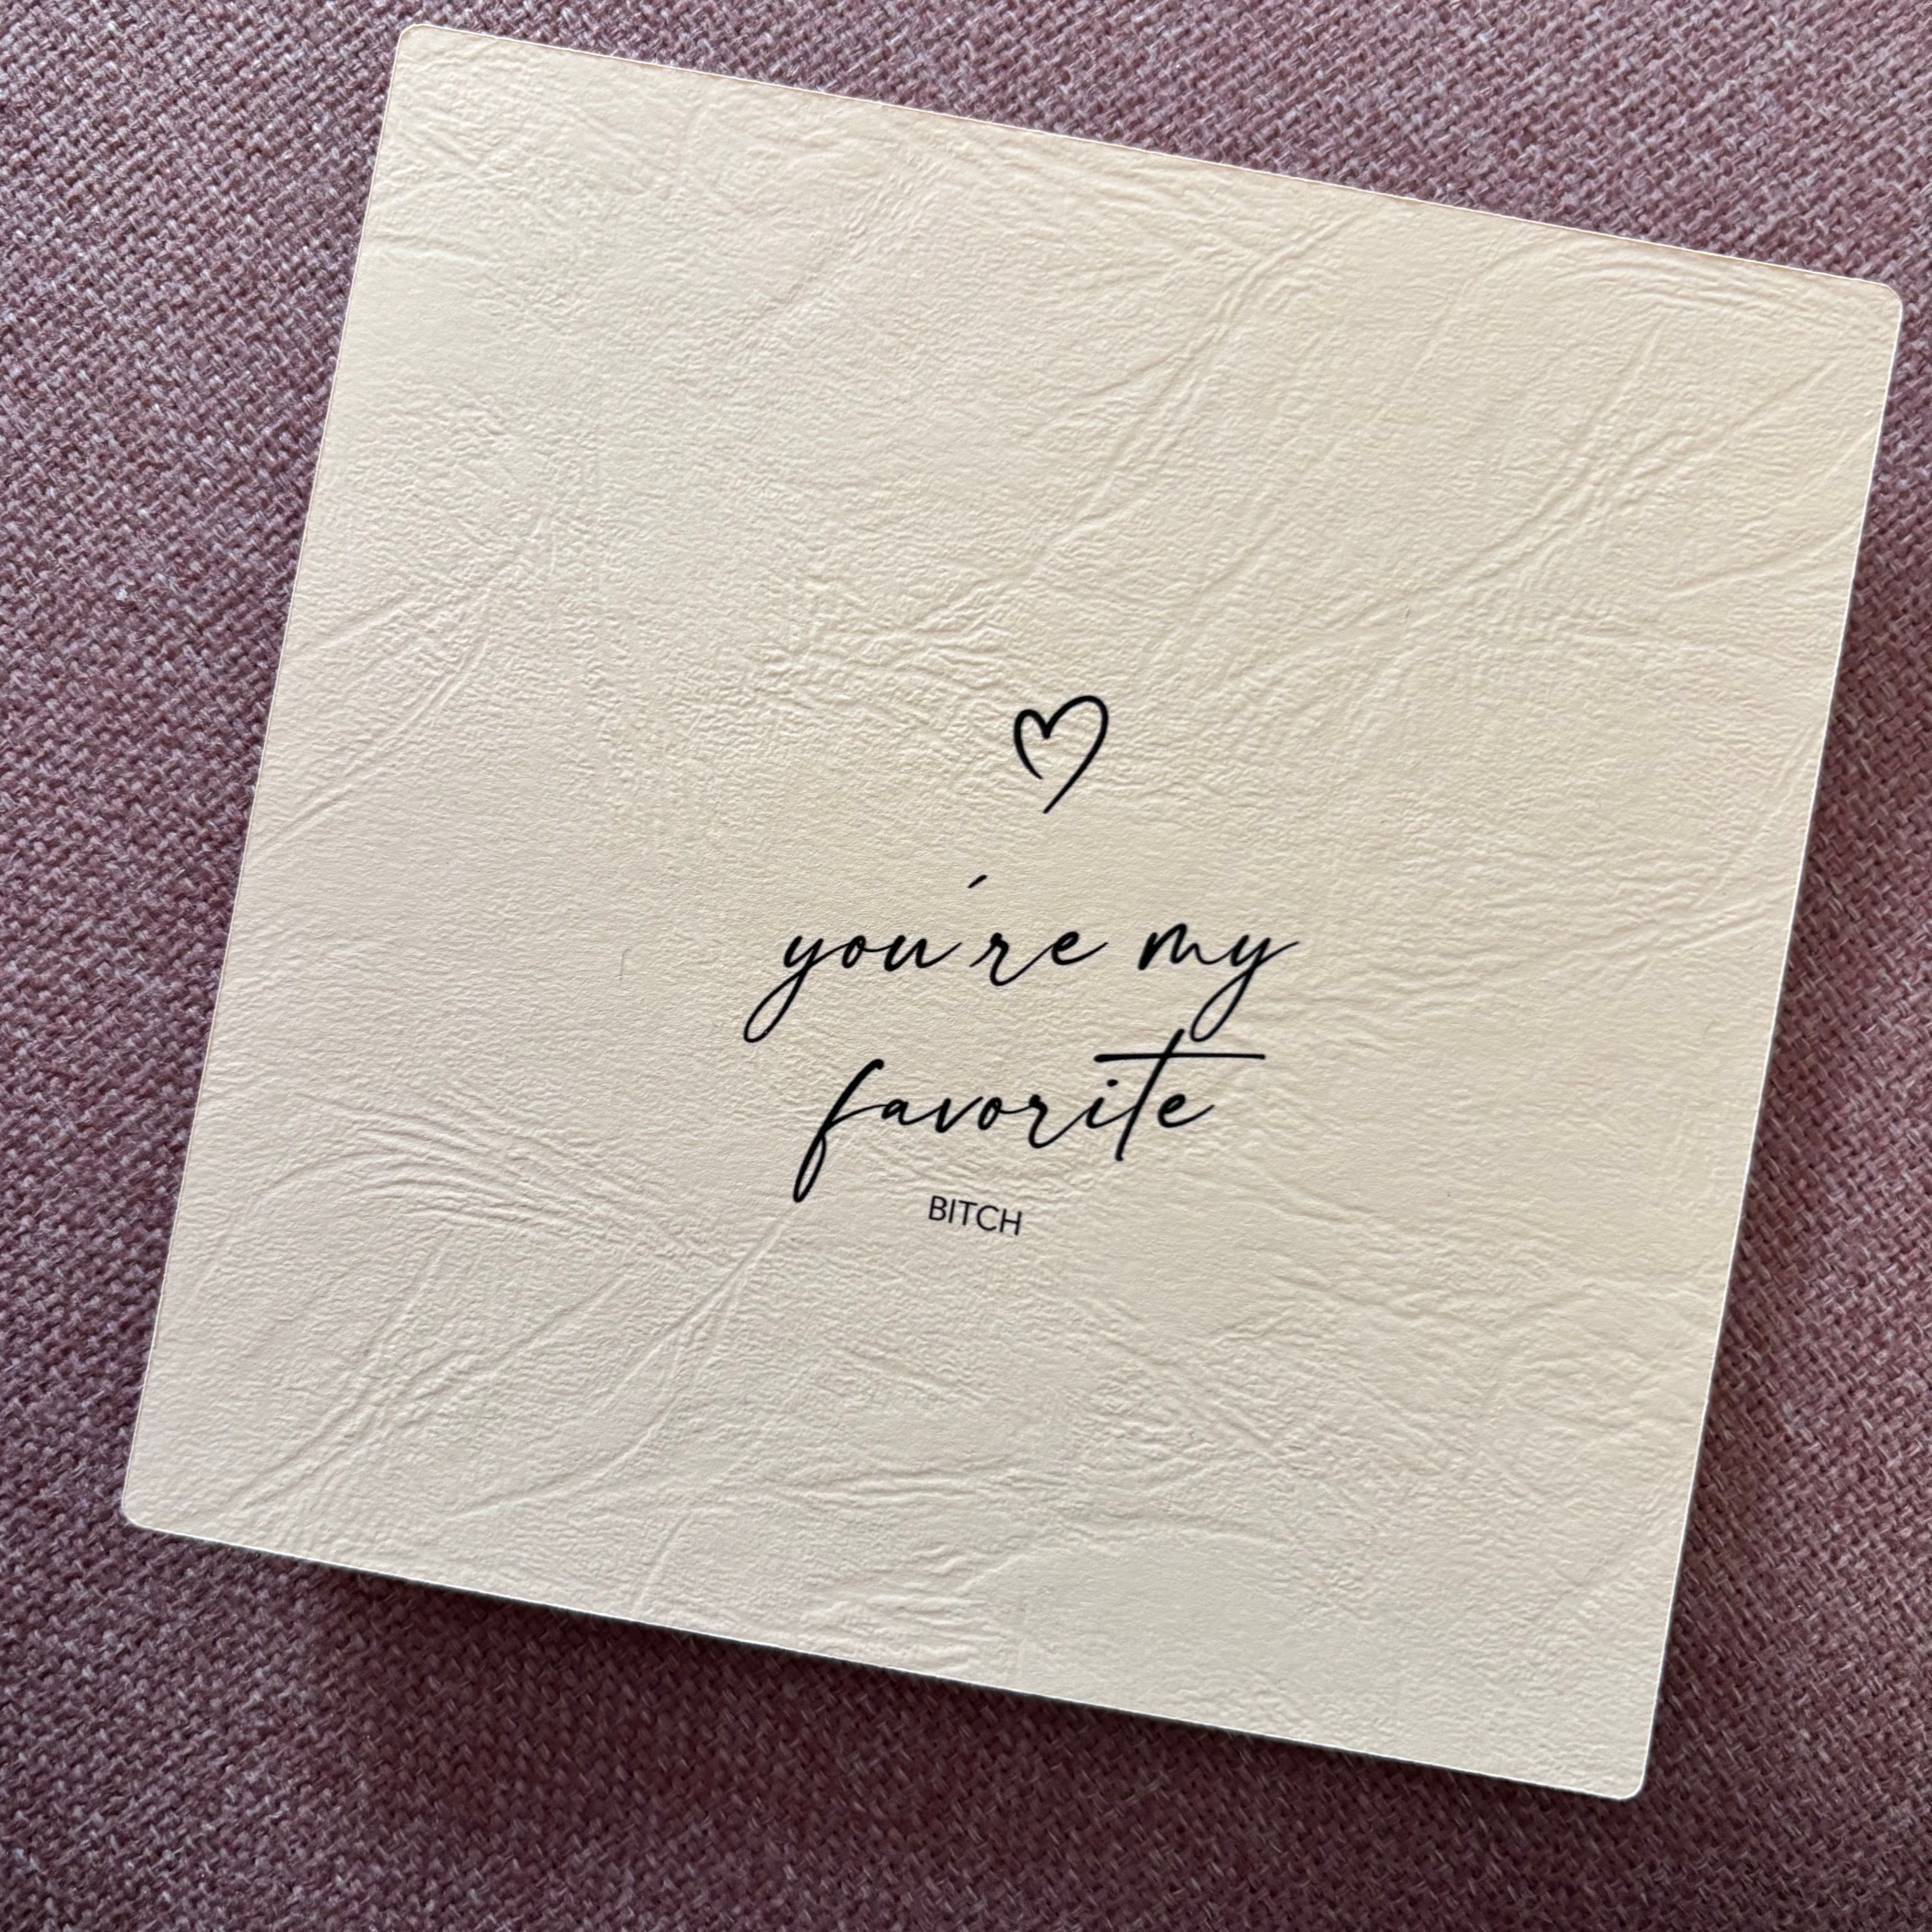 you're my
favorite
BITCH